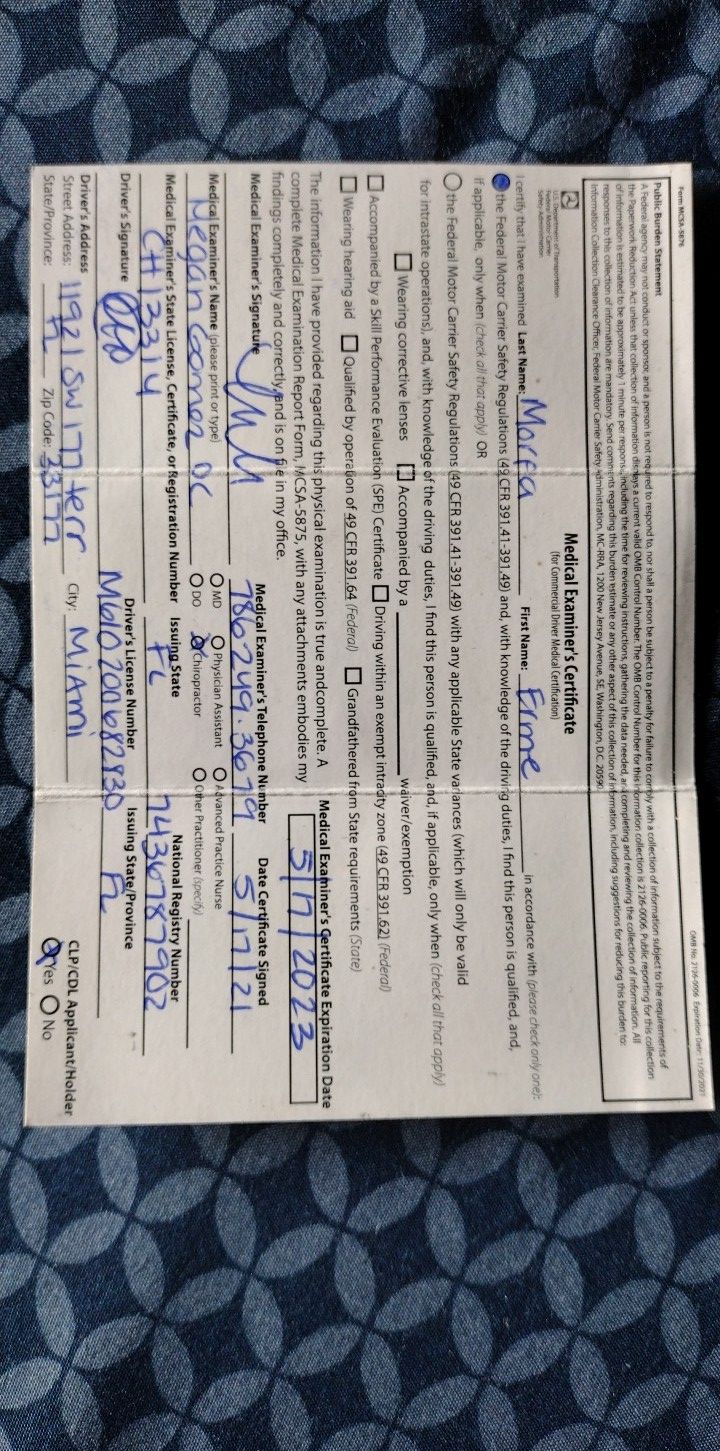 Form MCSA-5876 OMB No. 2126-0006 Expiration Date: 11/30/2021
Public Burden Statement
A Federal agency may not conduct or sponsor, and a person is not required to respond to, nor shall a person be subject to a penalty for failure to comply with a collection of information subject to the requirements of
the Paperwork Reduction Act unless that collection of information displays a current valid OMB Control Number. The OMB Control Number for this information collection is 2126-0006. Public reporting for this collection
of information is estimated to be approximately 1 minute per response, including the time for reviewing instructions, gathering the data needed, and completing and reviewing the collection of information. All
responses to this collection of information are mandatory. Send comments regarding this burden estimate or any other aspect of this collection of information, including suggestions for reducing this burden to:
Information Collection Clearance Officer, Federal Motor Carrier Safety Administration, MC-RRA, 1200 New Jersey Avenue, SE, Washington, D.C. 20590.
U.S. Department of Transportation
Federal Motor Carrier
Safety Administration
Medical Examiner's Certificate
(for Commercial Driver Medical Certification)
I certify that I have examined Last Name: Morfa First Name: in accordance with (please check only one):
the Federal Motor Carrier Safety Regulations (49 CFR 391.41-391.49) and, with knowledge of the driving duties, I find this person is qualified, and,
if applicable, only when (check all that apply) OR
the Federal Motor Carrier Safety Regulations (49 CFR 391.41-391.49) with any applicable State variances (which will only be valid
for intrastate operations), and, with knowledge of the driving duties, I find this person is qualified, and, if applicable, only when (check all that apply)
Wearing corrective lenses Accompanied by a waiver/exemption
Accompanied by a Skill Performance Evaluation (SPE) Certificate Driving within an exempt intracity zone (49 CFR 391.62) (Federal)
Wearing hearing aid Qualified by operation of 49 CFR 391.64 (Federal) Grandfathered from State requirements (State)
The information I have provided regarding this physical examination is true andcomplete. A
complete Medical Examination Report Form, MCSA-5875, with any attachments embodies my
findings completely and correctly, and is on file in my office.
Medical Examiner's Certificate Expiration Date
5/17/2023
Medical Examiner's Signature Medical Examiner's Telephone Number Date Certificate Signed
786 249.3679 5/17/21
Medical Examiner's Name (please print or type)
Negan Gomez DC
MD Physician Assistant Advanced Practice Nurse
DO Chiropractor Other Practitioner (specify)
Medical Examiner's State License, Certificate, or Registration Number Issuing State National Registry Number
CH13314 FL 7436787902
Driver's Signature Driver's License Number Issuing State/Province
M610200682830 FL
Driver's Address
Street Address: 11921 SW 177 terr City: MiAmi
State/Province: FL Zip Code: 33177
CLP/CDL Applicant/Holder
Yes No